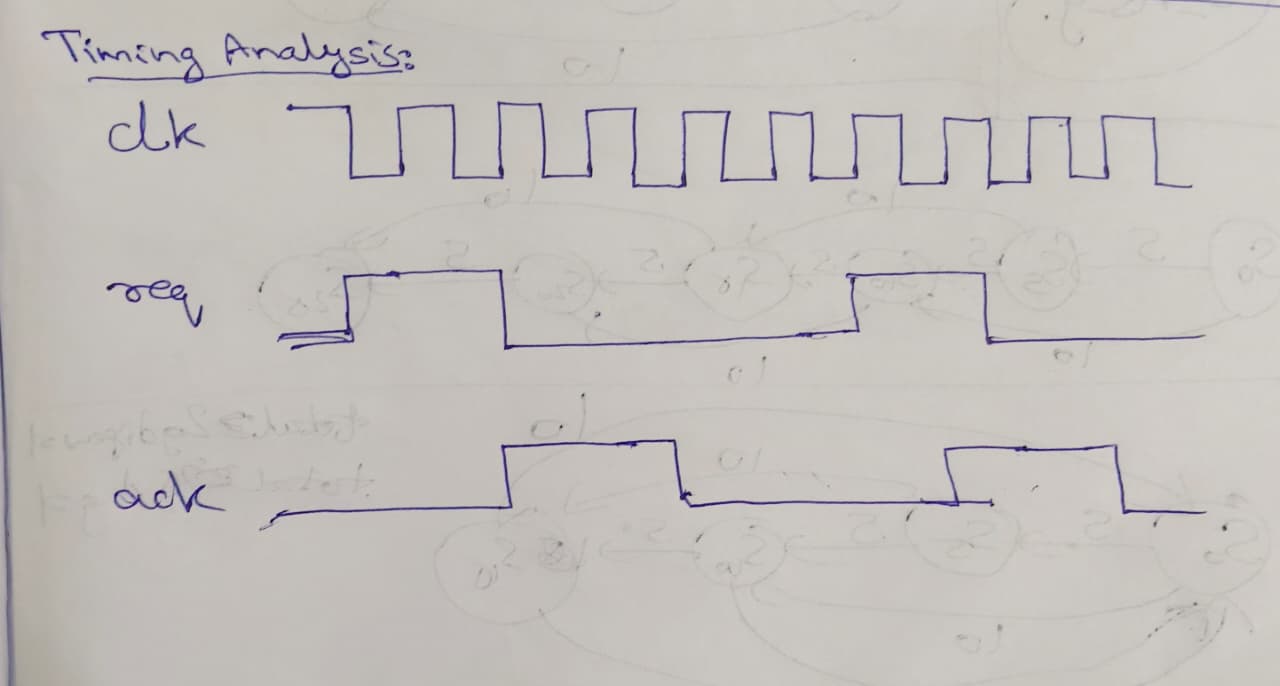 Timing Analysis:
clk
req
ack